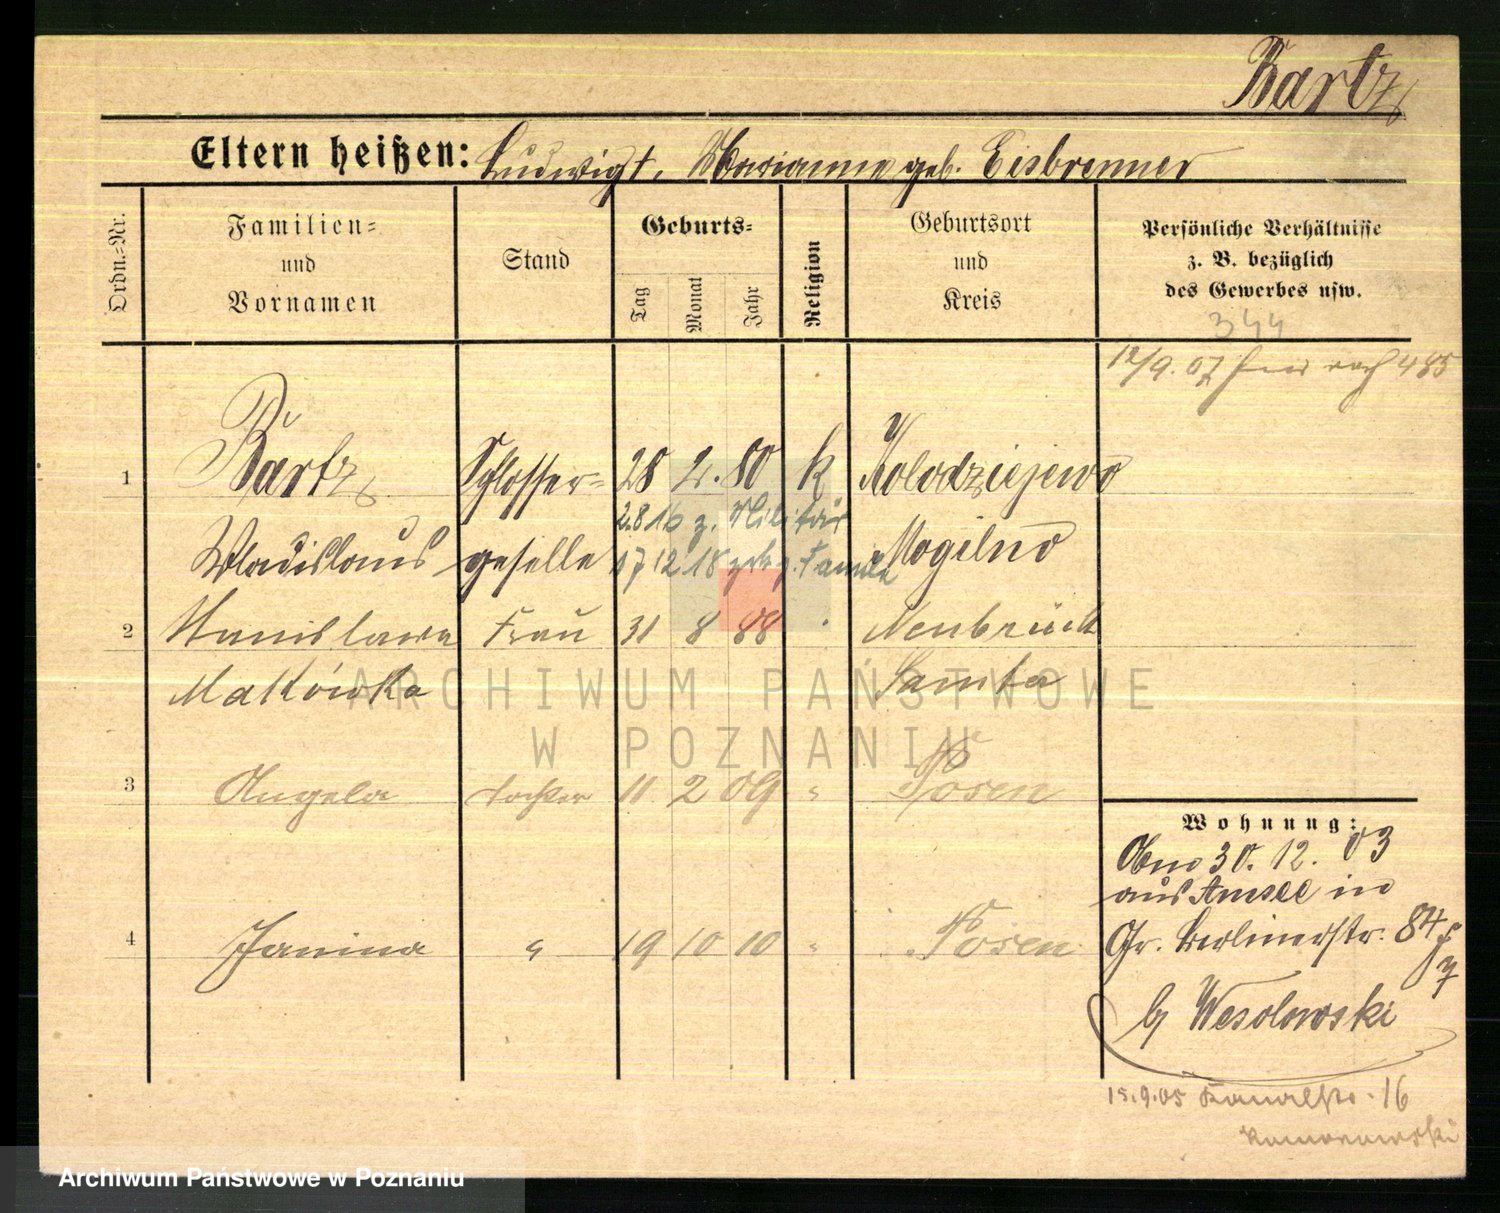 Bartz
Eltern heißen: Ludwig †, Marianne geb. Eisbrenner
Ordn.-Nr.
Familien-
und
Vornamen
Stand
Geburts-
Tag
Monat
Jahr
Religion
Geburtsort
und
Kreis
Persönliche Verhältnisse
z. B. bezüglich
des Gewerbes usw.
344
12/9. 07 nach 485
1 Bartz Schlosser- 28 2. 80 k Kolodziejewo
2.8 16 z. Militär
Wladislaus geselle Mogilno
17 12 18 z. Familie
2 Stanislawa Frau 31 8 88 Neubrück
Malkówka Samter
3 Angela Tochter 11 2 09 " Posen
4 Janina " 19 10 10 " Posen
Wohnung:
30. 12. 03
aus Amsee in
Gr. Berlinerstr. 84
b/ Wesolowski
15.9.05 Kanalstr. 16
ARCHIWUM PAŃSTWOWE
W POZNANIU
Archiwum Państwowe w Poznaniu